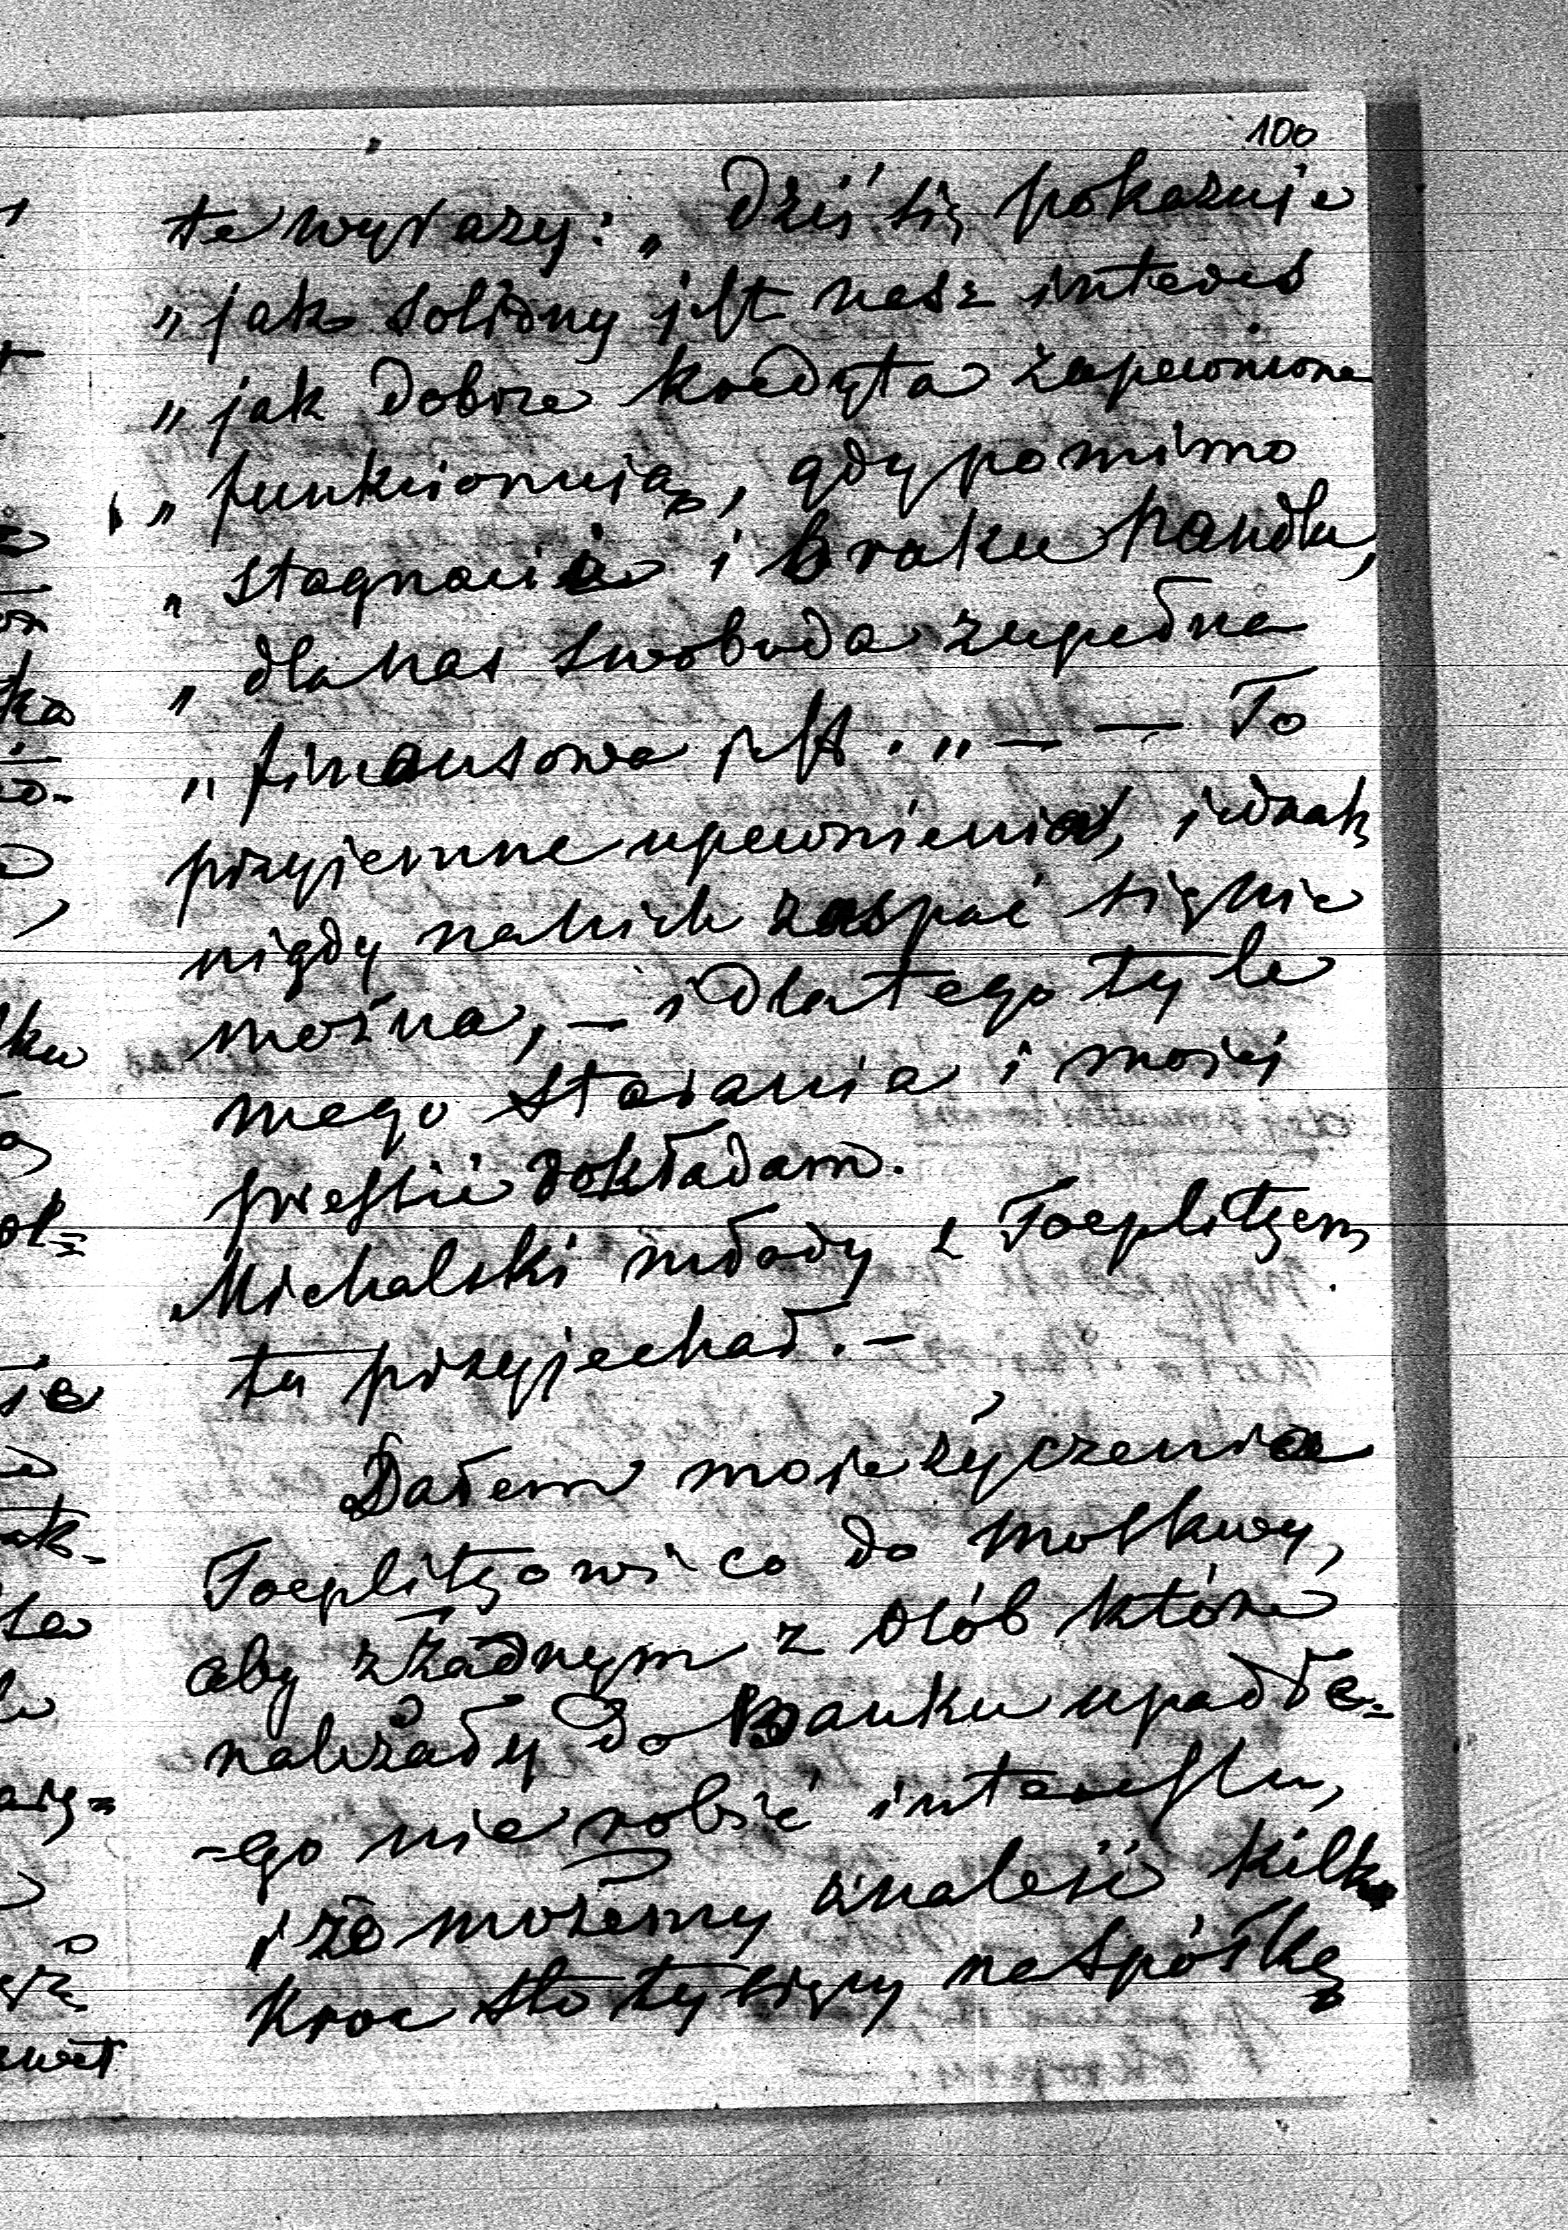 100
te wyrazy: „Dziś się pokazuje
„jak solidny jest nasz interes
„jak dobrze kredyta zapewnione
„funkcionują, gdy pomimo
„stagnacii i braku handlu,
„dla nas swoboda zupełna
„finansowa jest.„ — — To
przyjemne upewnienia, jednak
nigdy na nich zaspać się nie
można, — i dlatego tyle
mego starania i mojej
presii dokładam.
Michalski młody z Toeplitzem
tu przyjechał. —
Dałem moje życzenia
Toeplitzowi co do Moskwy,
aby z żadnym z osób które
należały do Banku upadłe=
=ego nie robić interessu,
i że możemy znaleść kilka
kroć sto tysięcy na spółkę